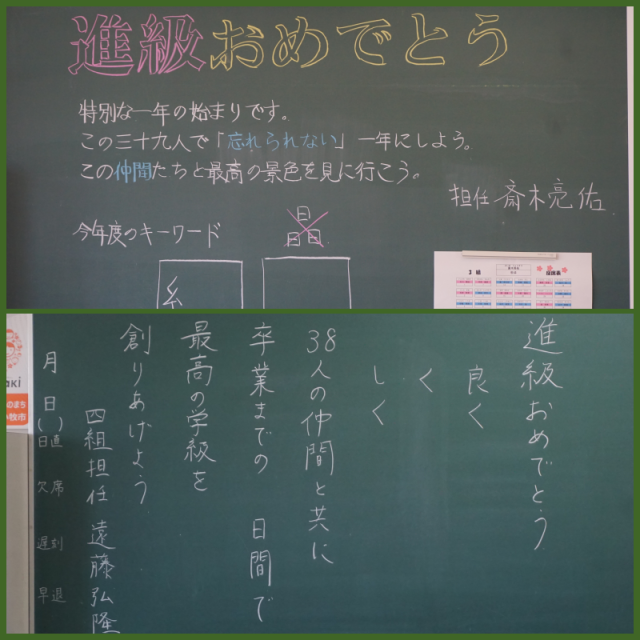 進級おめでとう
特別な一年の始まりです。
この三十九人で「忘れられない」一年にしよう。
この仲間たちと最高の景色を見に行こう。
担任 斎木亮佑
今年度のキーワード
日
日日
糸
3 組
座席表
進級おめでとう
良く
く
しく
38人の仲間と共に
卒業までの 日間で
最高の学級を
創りあげよう
四組担任 遠藤弘隆
月
日
( )
日直
欠席
遅刻
早退
aki
のまち
牧市